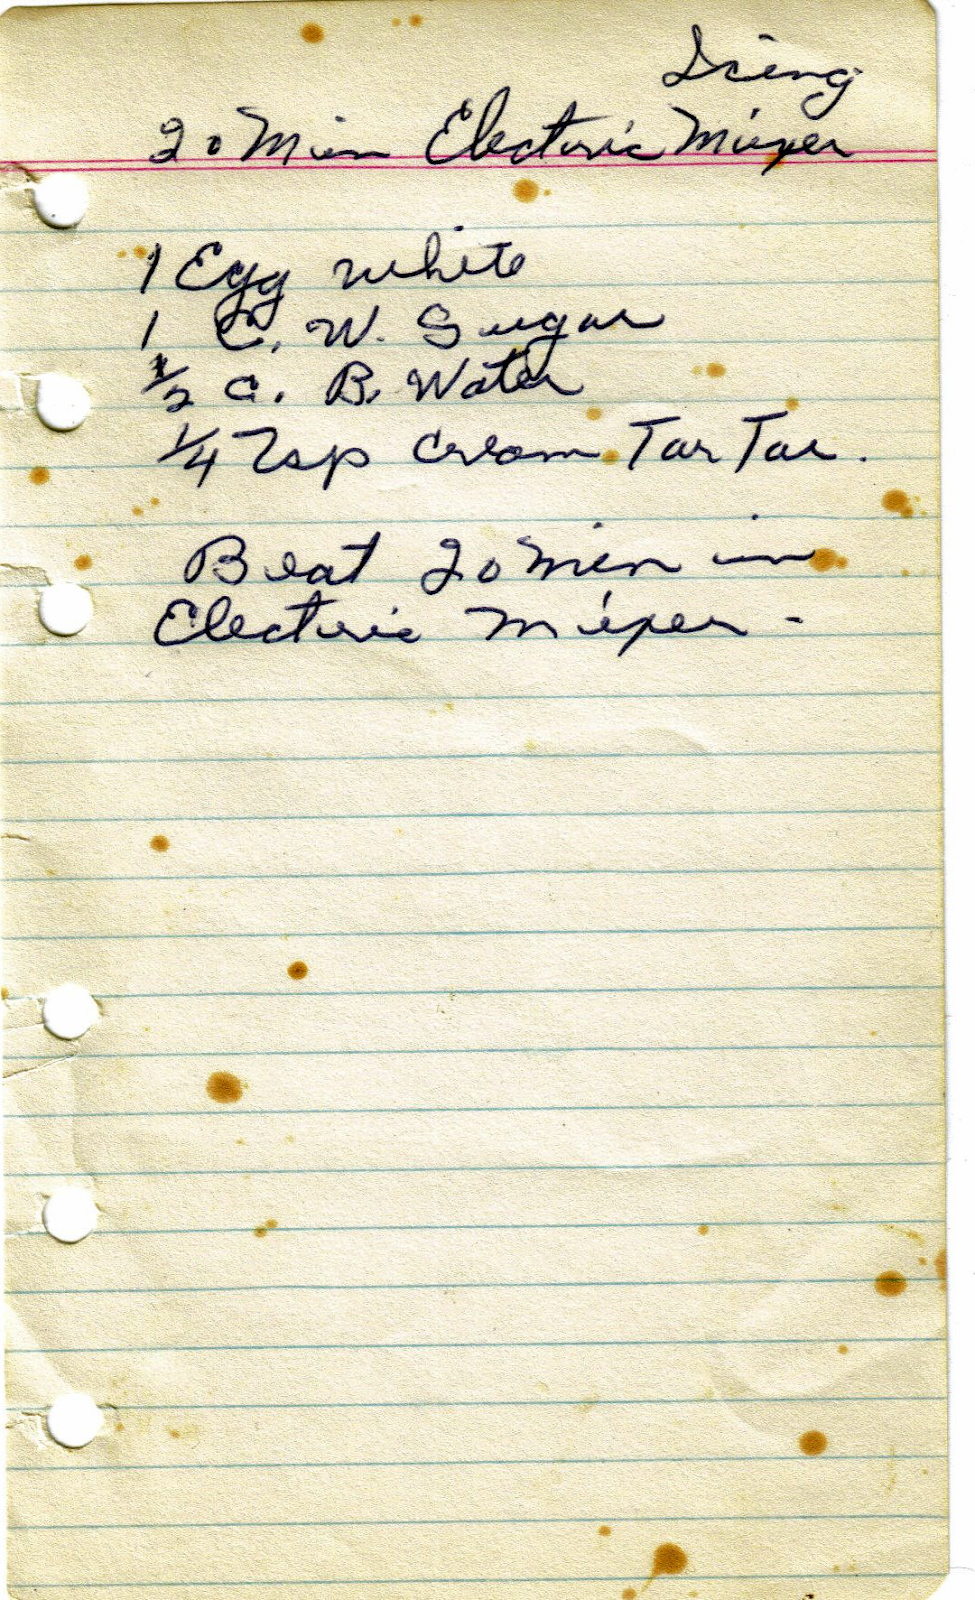 Icing
20 Min Electric Mixer
1 Egg white
1 C. W. Sugar
1/2 C. B. Water
1/4 Tsp Cream Tar Tar.
Beat 20 Min in
Electric Mixer -